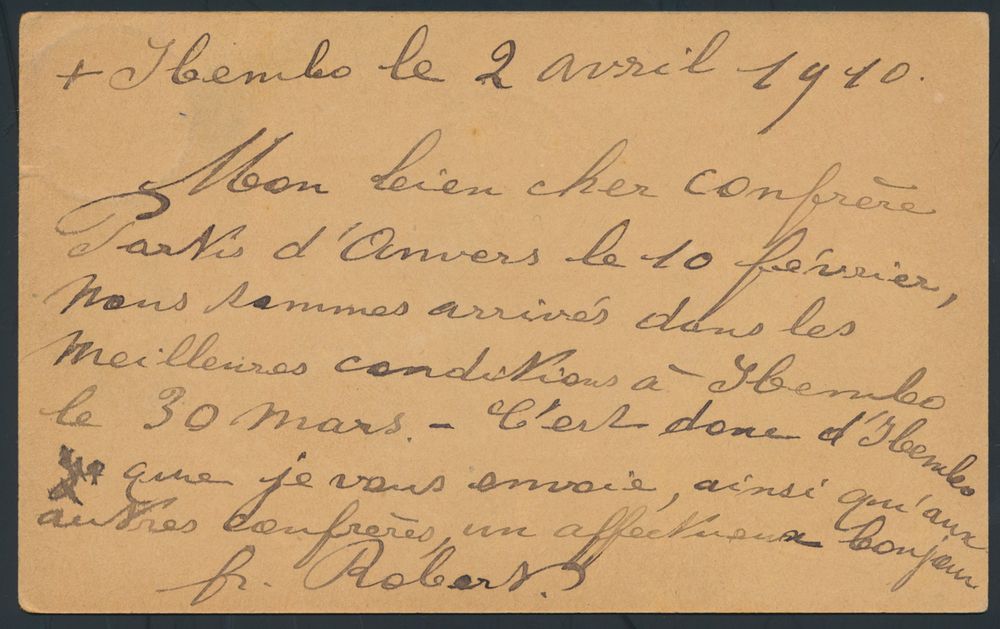 + Ibembo le 2 avril 1910.
Mon bien cher confrère
Partis d'Anvers le 10 février,
nous sommes arrivés dans les
meilleures conditions à Ibembo
le 30 mars. - C'est donc d'Ibembo
que je vous envoie, ainsi qu'aux
autres confrères, un affectueux bonjour
fr. Robert.